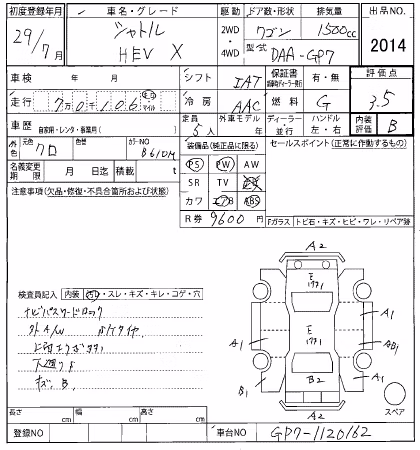 初度登録年月 車名・グレード 駆動 ドア数・形状 排気量 出品NO.
29/7月 シャトル 2WD ・ 4WD ワゴン 1500cc 2014
HEV X 型式 DAA-GP7
車検 年 月 シフト IAT 保証書 有・無 評価点
走行 70106 マイル 冷房 AAC 燃料 G 3.5
車歴 自家用・レンタ・事業用( ) 定員 5人 外車モデル 年 ディーラー 並行 ハンドル 左・右 内装評価 B
外色 元色 クロ 色替 カラーNO B610M 装備品(純正品に限る) セールスポイント(正常に作動するもの)
名義変更期限 月 日迄 積載 t PS PW AW
注意事項(欠品・修復・不具合箇所および状態) SR TV
カワ エアB ABS
R券 9600円
Fガラス トビ石・キズ・ヒビ・ワレ・リペア跡
A2
E
A1
A1
E
A1
AB1
B2
B1
A1
A2
スペア
検査員記入 内装 ・スレ・キズ・キレ・コゲ・穴
ナビパスワードロック
外A/W
キズ、B
長さ cm 幅 cm 高さ cm
登録NO 車台NO GP7-1120162